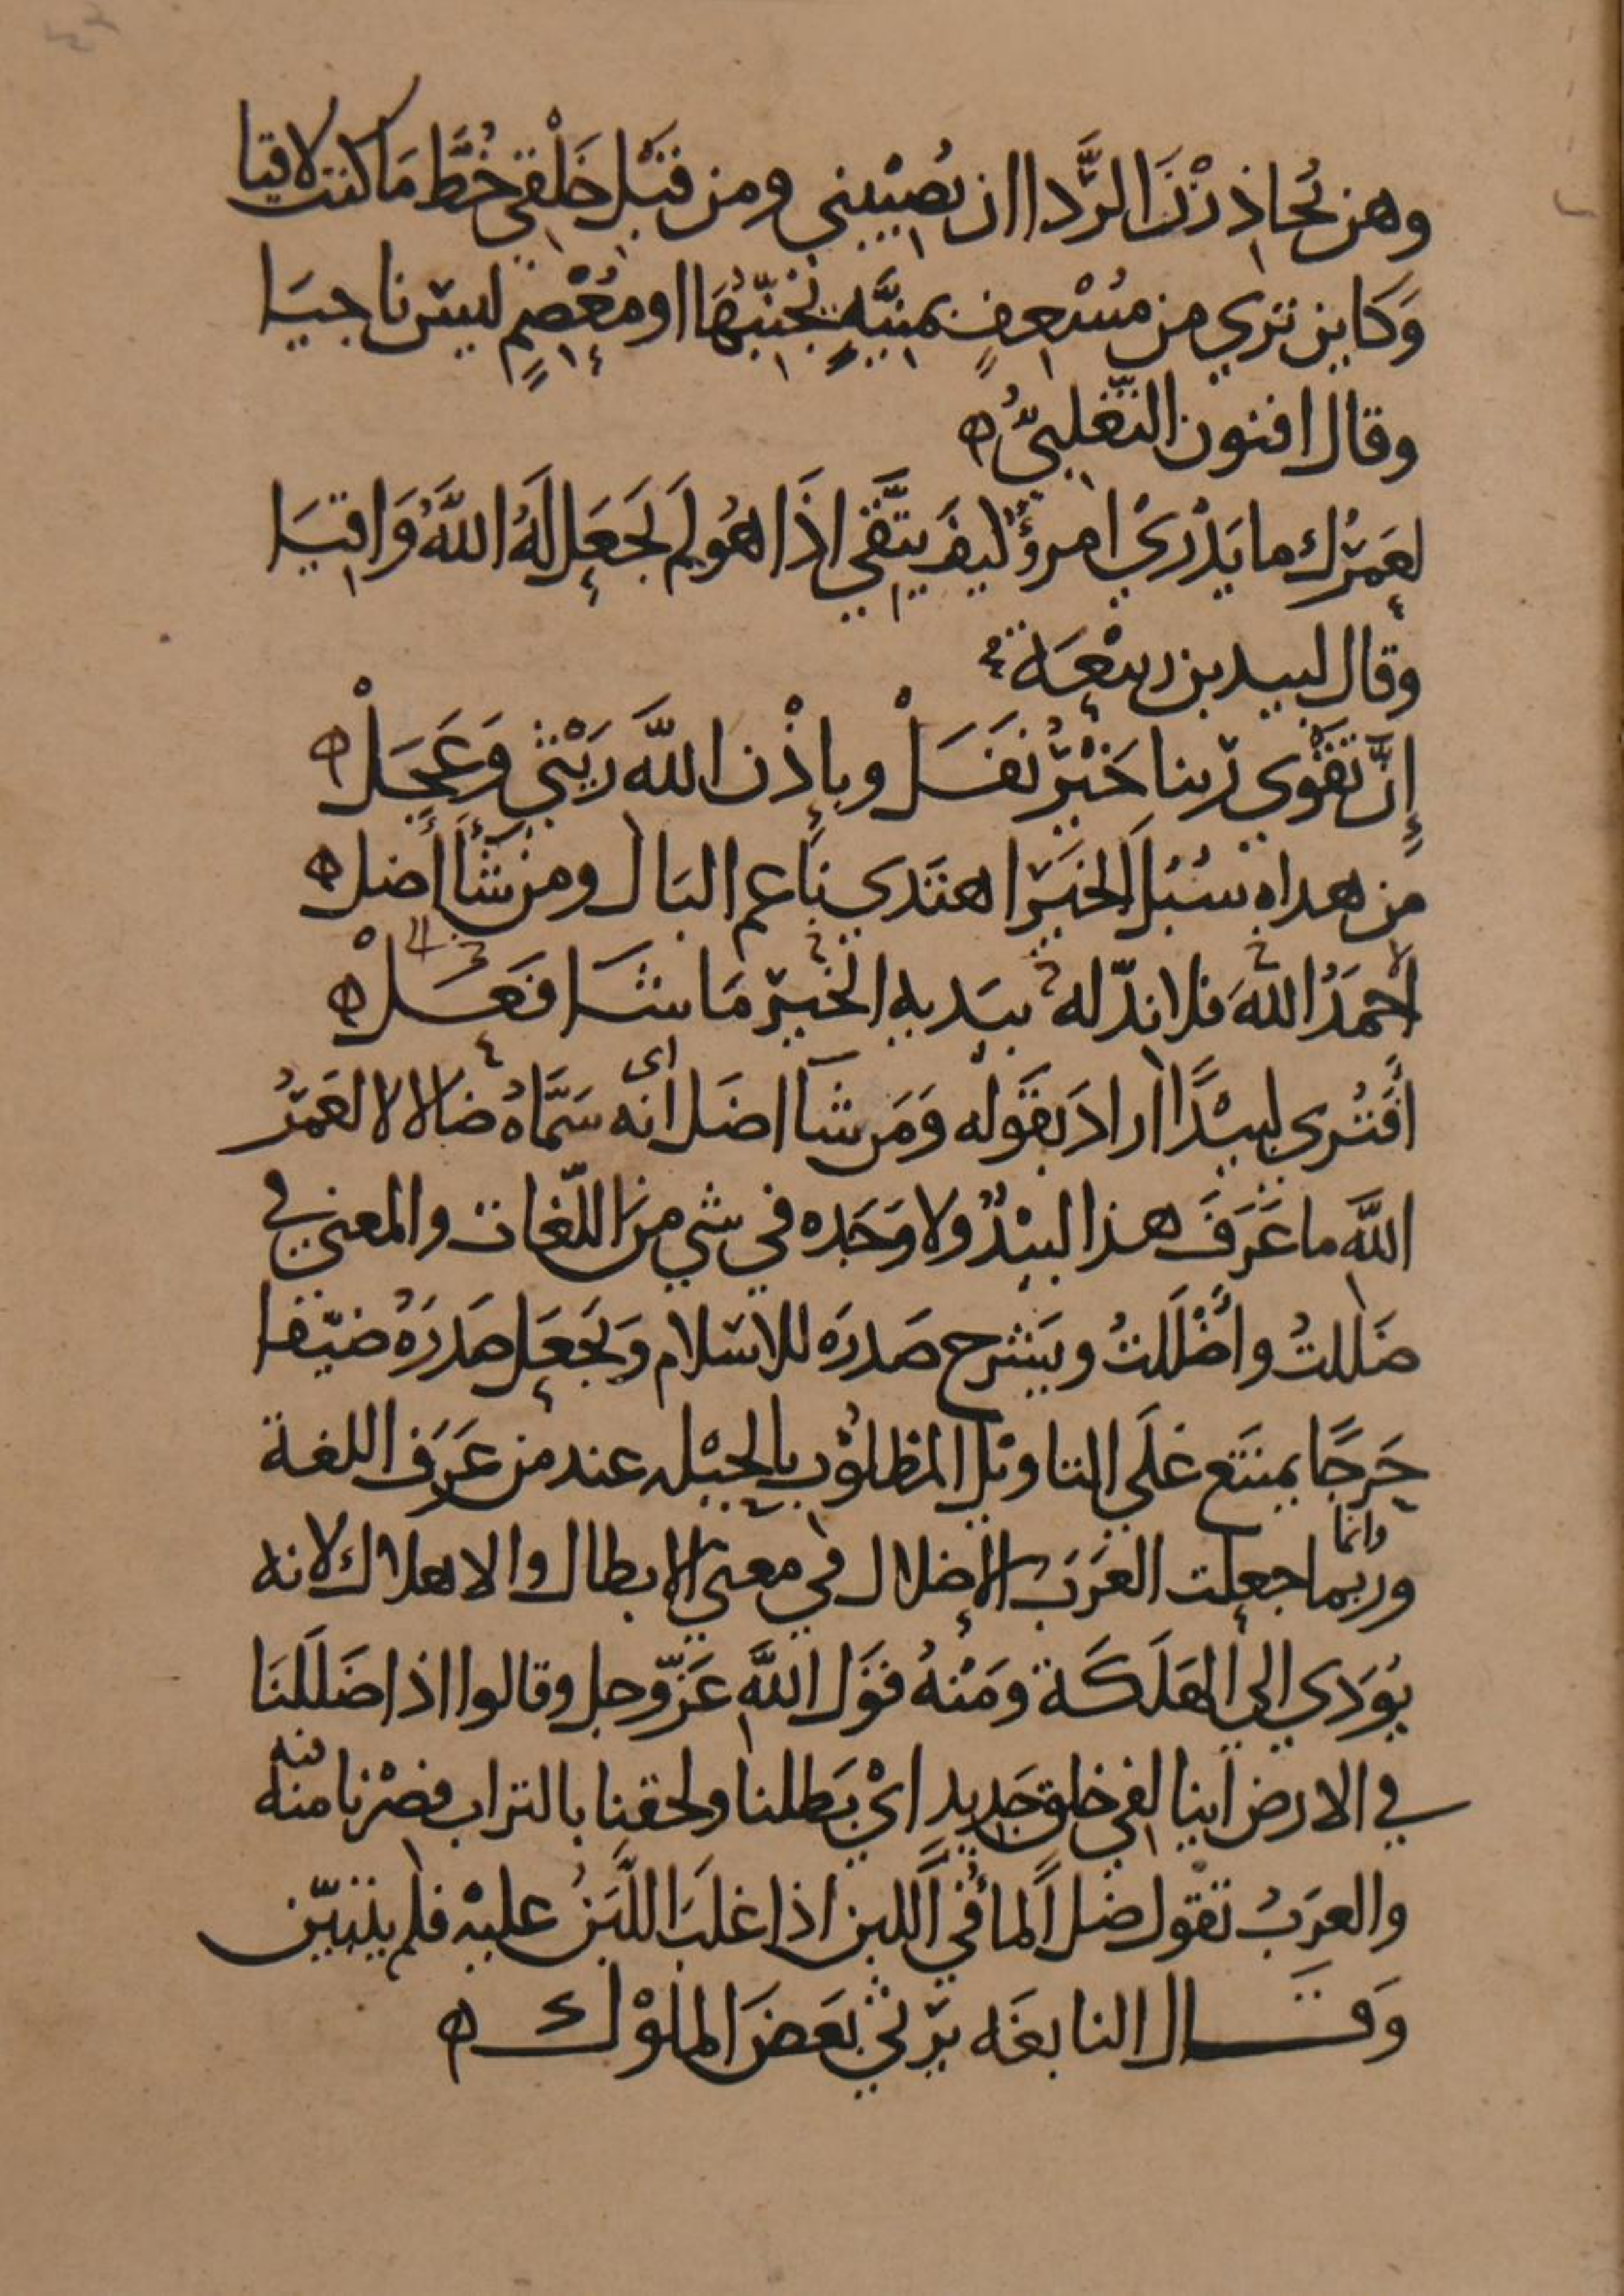 وهن يُحاذِرْنَ الرَّدا ان يُصِيْبني ومن قَبْلِ خَلْقي خُطَّ مَا كنت لاقيا
وَكاين تري من مُسْعِفٍ بمنيَّهٍ يُجَنّبُهَا او مُعْصِمٍ ليس ناجيَا
وقال افنون التغلبيُّ ه
لعَمْرُك ما يَدْري امرؤٌ كيفَ يتَّقي اذَا هُو لم يَجعَل لَهُ اللَّهُ وَاقيَا
وقال لبيد بن ربيْعَة
إنَّ تَقْوَي ربنا خَيْرُ نَفَلْ وبإذْن اللَّه رَيْثي وَعَجَلْ ه
من هداه سُبُلَ الخيَر اهتَدي ناعم البَال ومن شَأ أضل ه
احمَدُ اللهَ فلا ندّ له بيَديه الخيرُ مَا شَا فَعَلْ ه
افَتُرى لبيْدًا اراد بقَوله وَمَن شآ اضَل اى انه سَمَّاهُ ضالا لا لعَمْرُ
اللَّه ما عَرَفَ هذا لبيْدٌ ولا وَجَده في شي منَ اللّغات والمعني في
ضَللتُ واضْلَلتُ ويَشرح صَدرَه للاسلام وَيَجعَل صَدرَهُ ضيّقا
حَرجًا يمتنَع عَلَي التاويْل المطلوْب بالحيْله عند من عَرَف اللغة
ورُبما وانما جعلت العَرَبُ الإضلال في معني الابطال والاهلاك لانه
يُوَدي الي الهَلَكَة ومَنْهُ قوَل اللَّهِ عَزّوجل وقالوا اذا ضَلَلنَا
في الارض اينا لفي خلق جَديدٍ ايْ بَطلنا ولحقنا بالتراب فصْرنا منه فيه
والعرَبُ تقول ضل الماُفي اللبن اذا غلَبَ اللَّبَنُ عليْه فلم يتبيّن
وَقَال النابغَه يَرثي بَعضَ الملوْك ه